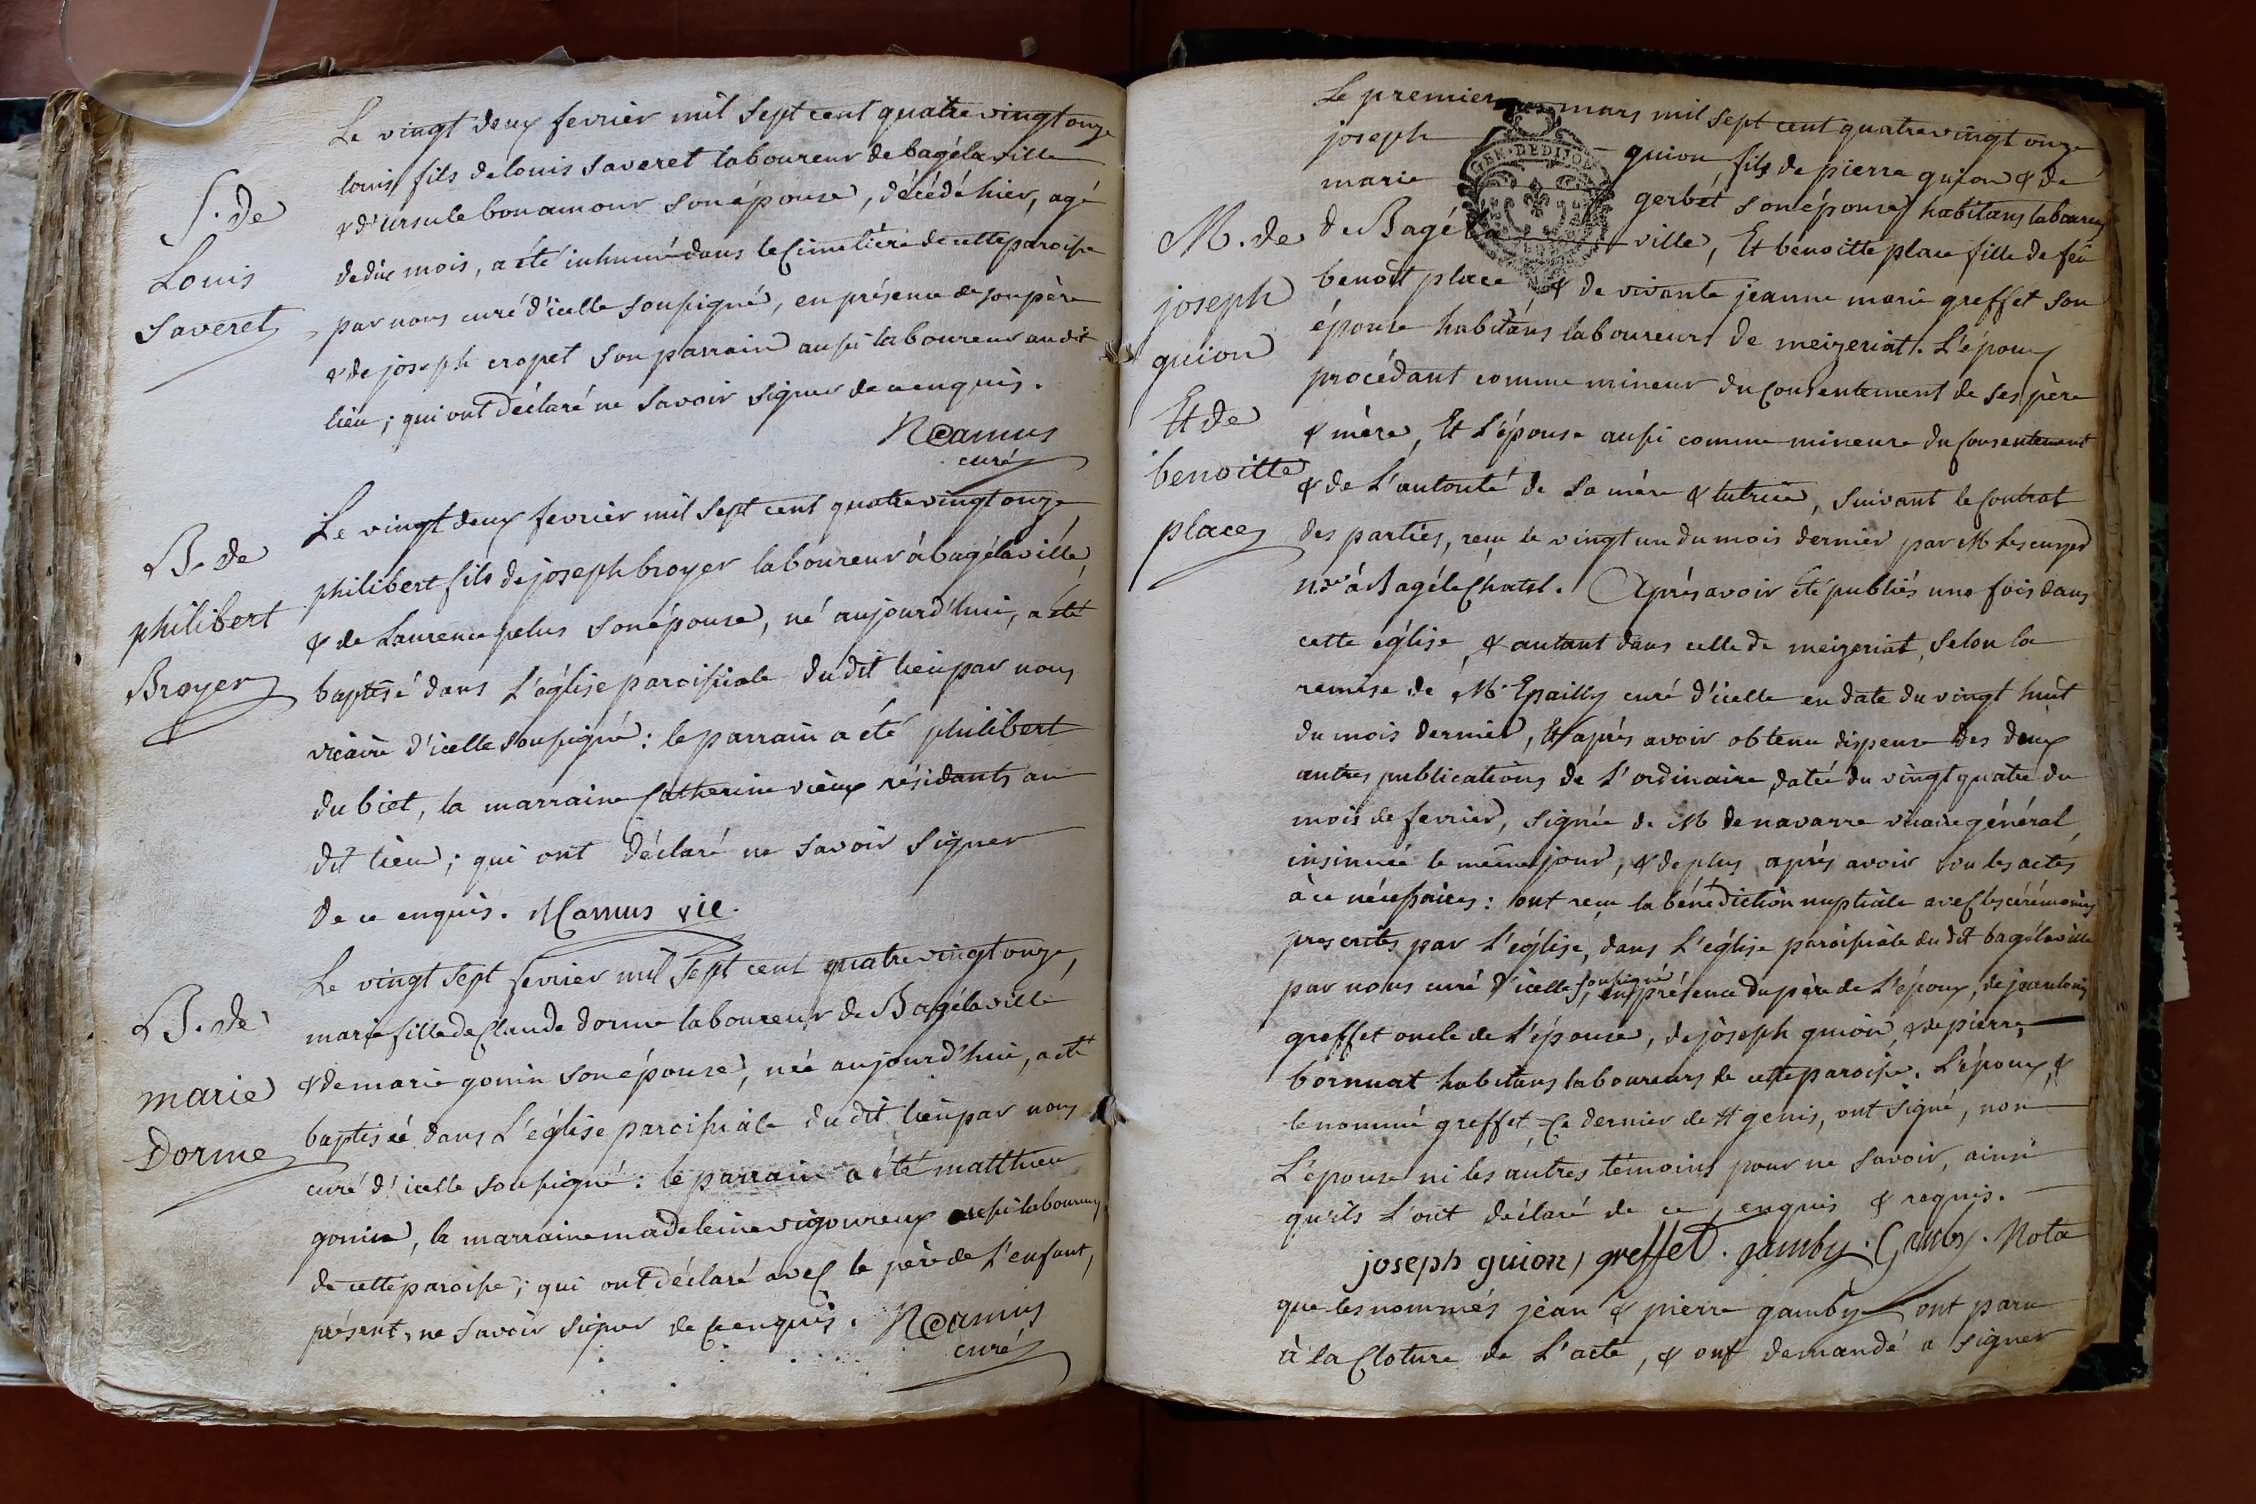 S. de
Louis
Saveret
Le vingt deux fevrier mil sept cent quatre vingt onze
louis fils de louis saveret laboureur de bagé la ville
& d'ursule bonamour son épouse, décédé hier, agé
de dix mois, a été inhumé dans le Cimetière de cette paroisse
par nous curé d'icelle soussigné, en présence de son père
& de joseph cropet son parrain aussi laboureur au dit
lieu ; qui ont déclaré ne savoir signer de ce enquis.
N Camus
curé
B. de
philibert
Broyer
Le vingt deux fevrier mil sept cent quatre vingt onze
philibert fils de joseph broyer laboureur à bagé la ville,
& de Laurence pelus son épouse, né aujourd'hui, a été
baptisé dans L'église paroissiale du dit lieu par nous
vicaire d'icelle soussigné : le parrain a été philibert
du biet, la marraine Catherine vieux résidants au
dit lieu ; qui ont déclaré ne savoir signer
de ce enquis. Camus vic.
B. de
marie
Dorme
Le vingt sept fevrier mil sept cent quatre vingt onze,
marie fille de Claude dorme laboureur de Bagé la ville
& de marie gonin son épouse, née aujourd'hui, a été
baptisée dans L'église paroissiale du dit lieu par nous
curé d'icelle soussigné : le parrain a été matthieu
gonin, la marraine madeleine vigoureux aussi laboureurs
de cette paroisse ; qui ont déclaré avec le père de L'enfant,
présent, ne savoir signer de ce enquis. N Camus
curé
M. de
joseph
guion
Et de
benoitte
place
GEN. DE DIJON
Le premier mars mil sept cent quatre vingt onze
joseph guion, fils de pierre guion & de
marie gerbet son épouse habitans laboureurs
de Bagé la ville, Et benoitte place fille de feu
benoit place, & de vivante jeanne marie greffet son
épouse habitans laboureurs de meizeriat. L'époux
procédant comme mineur du Consentement de ses père
& mère, Et L'épouse aussi comme mineure du Consentement
& de L'autorité de sa mère & tutrice, suivant le Contrat
des parties, reçu le vingt un du mois dernier par M
nre à Bagé le Chatel. Après avoir été publiés une fois dans
cette église, & autant dans celle de meizeriat, selon la
remise de Mr Epailly curé d'icelle en date du vingt huit
du mois dernier, Et après avoir obtenu dispense des deux
autres publications de L'ordinaire datée du vingt quatre du
mois de fevrier, signée de M de navarre vicaire général,
insinuée le même jour, & de plus après avoir vu les actes
à ce nécessaires : ont reçu la bénédiction nuptiale avec les cérémonies
prescrites par L'église, dans L'eglise paroissiale du dit bagé la ville
par nous curé d'icelle soussigné, en présence du père de L'époux, de jean louis
greffet oncle de L'épouse, de joseph guion, & de pierre
bornuat habitans laboureurs de cette paroisse. L'époux, &
le nommé greffet, Ce dernier de st genis, ont signé, non
L'épouse ni les autres témoins pour ne savoir, ainsi
qu'ils L'ont déclaré de ce enquis & requis.
joseph guion, greffet. gamby. Gamby. Nota
que les nommés jean & pierre gamby ont paru
à la Cloture de L'acte, & ont demandé a signer